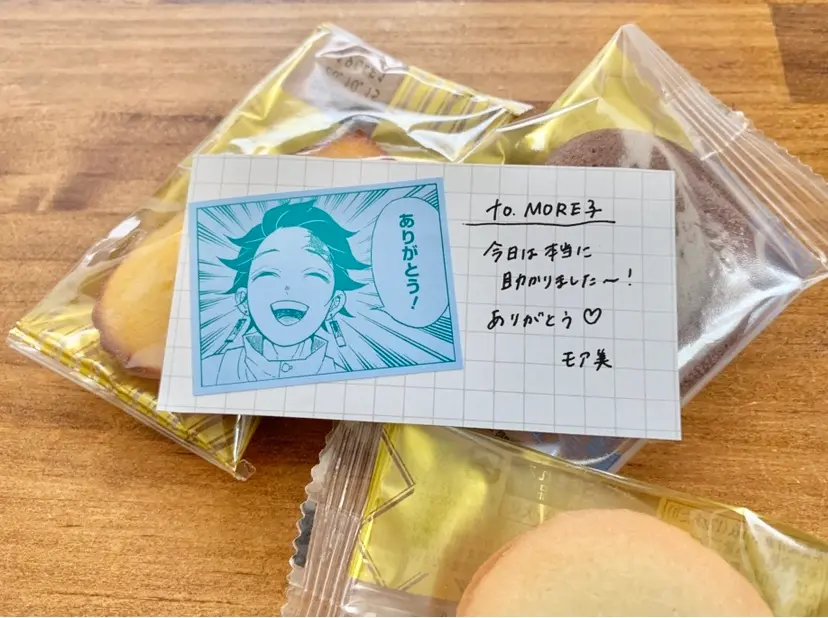 ありがとう!
to. MORE子
今日は本当に
助かりました〜!
ありがとう♡
モア美